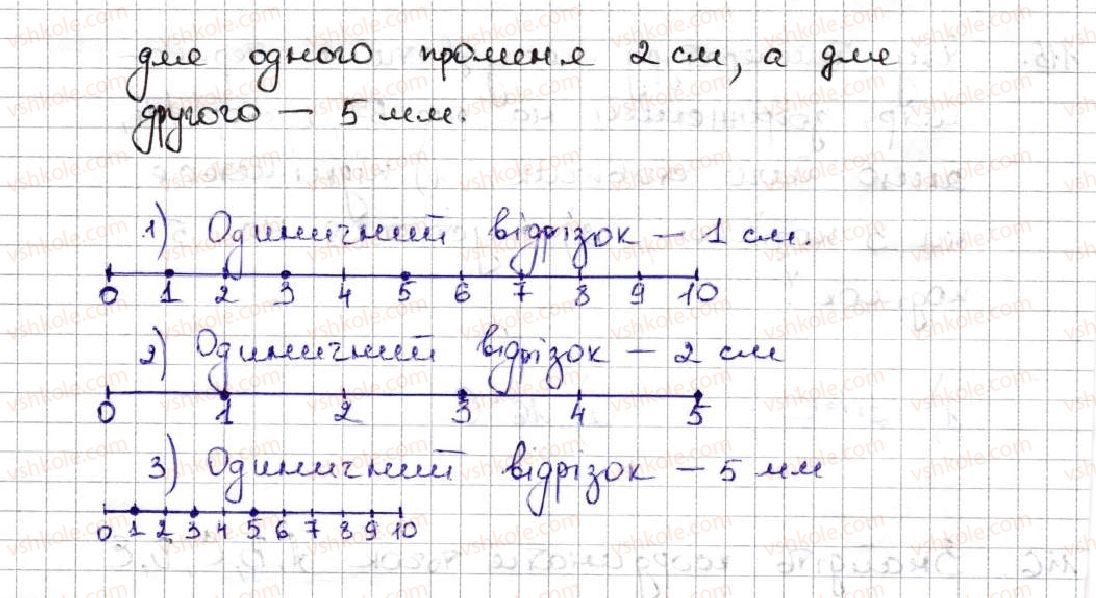 для одного променя 2 см, а для
другого — 5 мм.
1) Одиничний відрізок — 1 см.
0 1 2 3 4 5 6 7 8 9 10
2) Одиничний відрізок — 2 см
0 1 2 3 4 5
3) Одиничний відрізок — 5 мм
0 1 2 3 4 5 6 7 8 9 10
vshkole.com